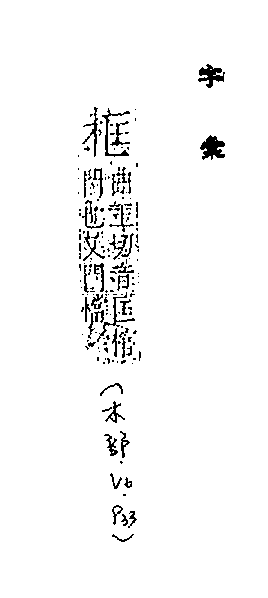 字彙
框
曲王切音匡棺
門也又門檔
(木部.V6.P33)